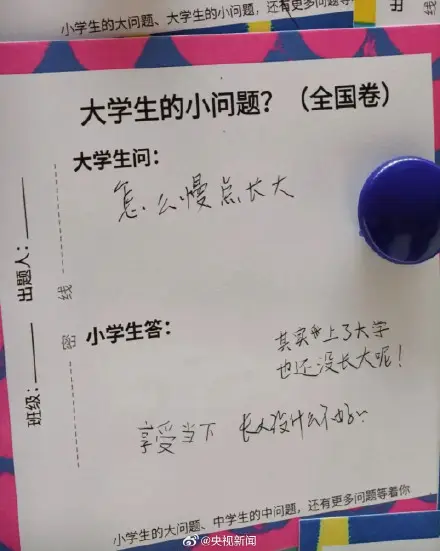 小学生的大问题、大学生的小问题，还有更多问题等
出
线
大学生的小问题？（全国卷）
大学生问：
怎么慢点长大
出题人：
线
密
班级：
小学生答：
其实上了大学
也还没长大呢！
享受当下 长大没什么不好
小学生的大问题、中学生的中问题，还有更多问题等着你
@央视新闻